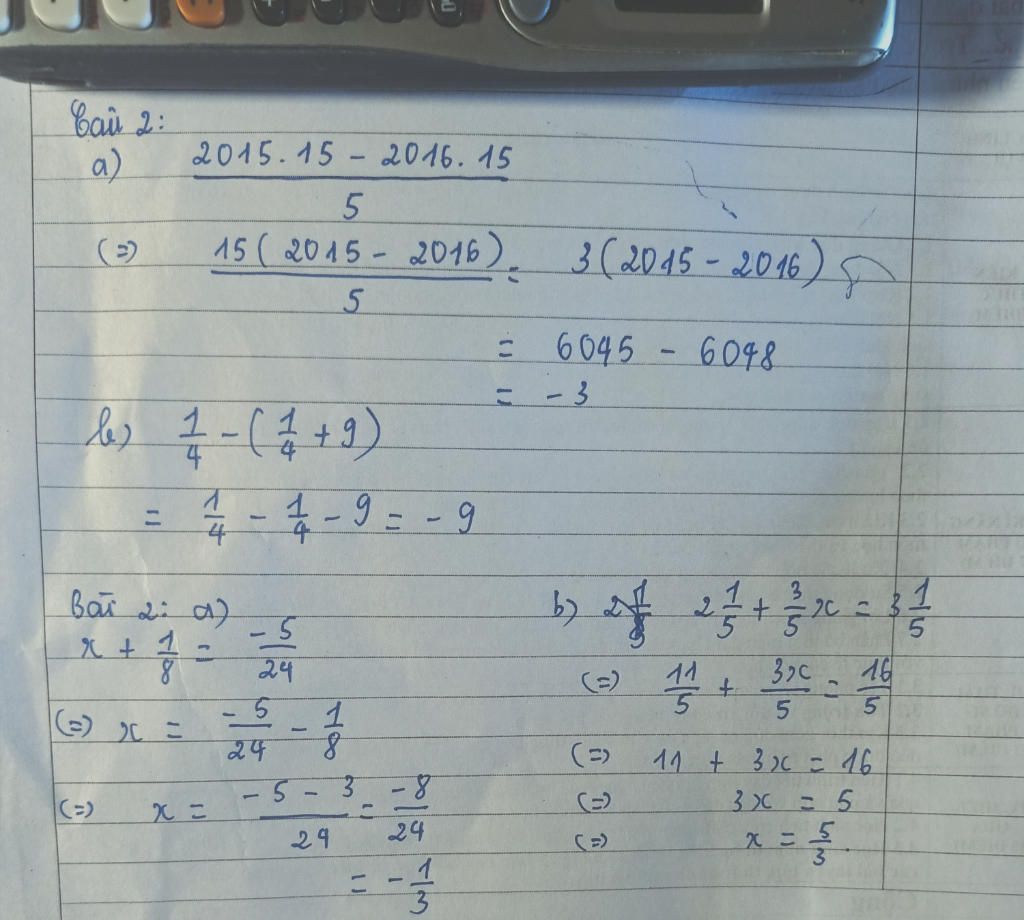 Câu 2:
a) 2015.15 - 2016.15 / 5
(=) 15(2015 - 2016) / 5 = 3(2015 - 2016)
= 6045 - 6048
= -3
b) 1/4 - (1/4 + 9)
= 1/4 - 1/4 - 9 = -9
Bài 2: a)
x + 1/8 = -5/24
(=) x = -5/24 - 1/8
(=) x = -5 - 3 / 24 = -8/24
= -1/3
b) 2 1/5 + 3/5 x = 3 1/5
(=) 11/5 + 3x/5 = 16/5
(=) 11 + 3x = 16
(=) 3x = 5
(=) x = 5/3.